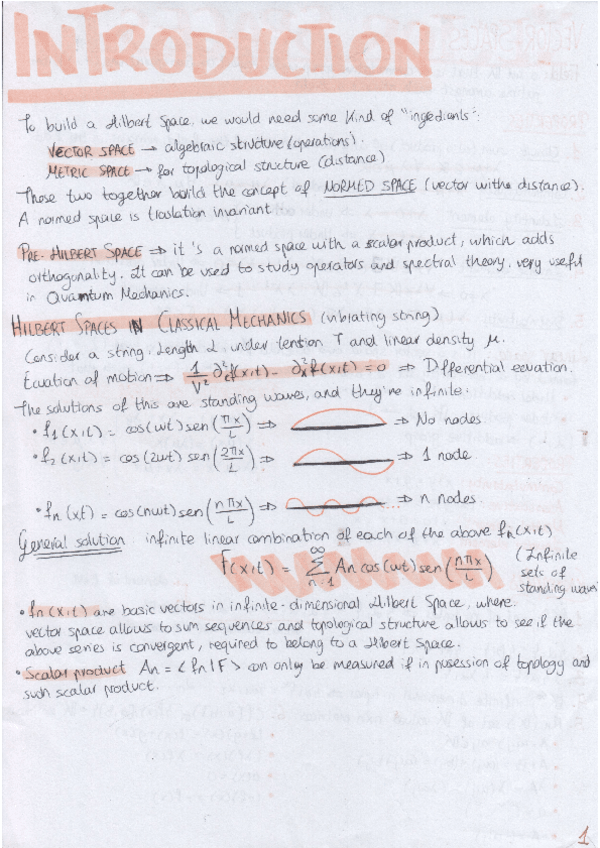 INTRODUCTION
To build a Hilbert Space, we would need some kind of "ingedients":
VECTOR SPACE → algebraic structure (operations).
METRIC SPACE → for topological structure (distance)
These two together builds the concept of NORMED SPACE (vector withe distance).
A normed space is traslation invariant
PRE-HILBERT SPACE ⇒ it's a normed space with a scalar product, which adds
orthogonality. It can be used to study operators and spectral theory, very useful
in Quantum Mechanics.
HILBERT SPACES IN CLASSICAL MECHANICS (vibrating string)
Consider a string, length L, under tention T and linear density μ.
Ecuation of motion ⇒ 1/V² ∂²t f(x,t) - ∂²x f(x,t) = 0 ⇒ Differential ecuation.
The solutions of this are standing waves, and they're infinite:
• f1(x,t) = cos(ωt) sen(πx/L) ⇒ ⇒ No nodes
• f2(x,t) = cos(2ωt) sen(2πx/L) ⇒ ⇒ 1 node
• fn(xt) = cos(nωt) sen(nπx/L) ⇒ ... ⇒ n nodes
General solution infinite linear combination of each of the above fn(x,t)
F(x,t) = ∞ Σ n=1 An cos(ωt) sen(nπx/L) (Infinite
sets of
standing wave)
• fn(x,t) are basic vectors in infinite-dimensional Hilbert Space, where:
vector space allows to sum sequences and topological structure allows to see if the
above series is convergent, required to belong to a Hilbert Space.
• Scalar product An = <fn|F> can only be measured if in posession of topology and
such scalar product.
1